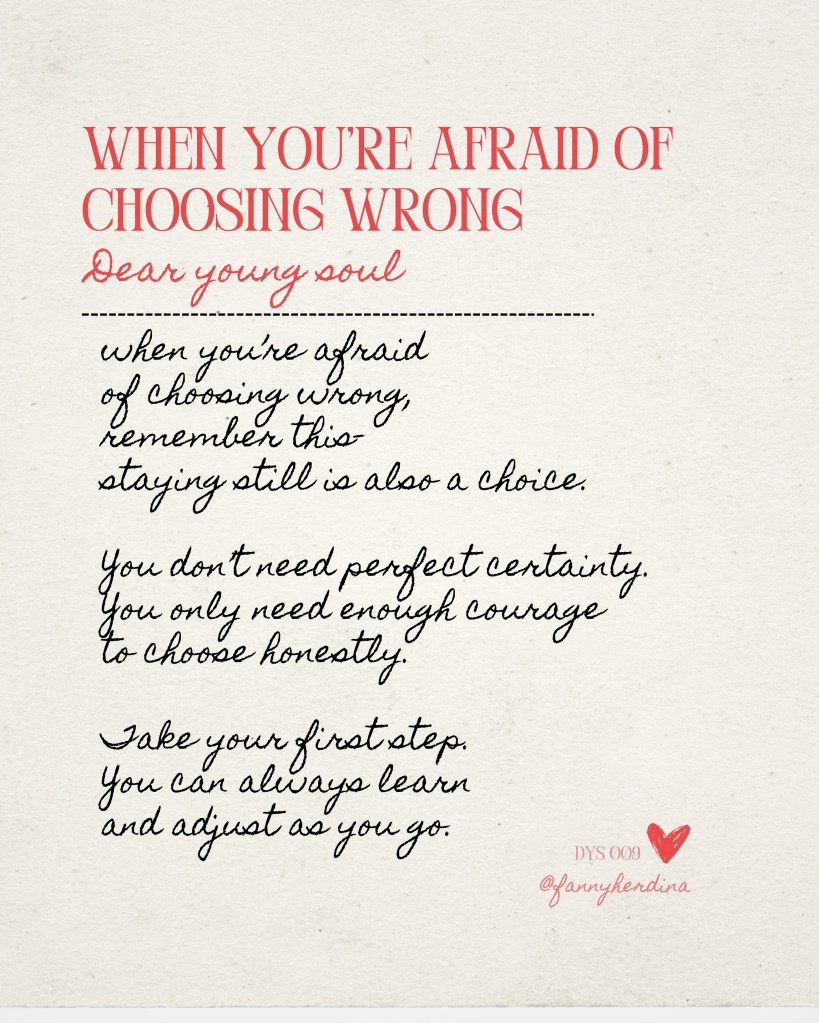 WHEN YOU'RE AFRAID OF
CHOOSING WRONG
Dear young soul
when you're afraid
of choosing wrong,
remember this-
staying still is also a choice.
You don't need perfect certainty.
You only need enough courage
to choose honestly.
Take your first step.
You can always learn
and adjust as you go.
DYS 009
@fannyherdina